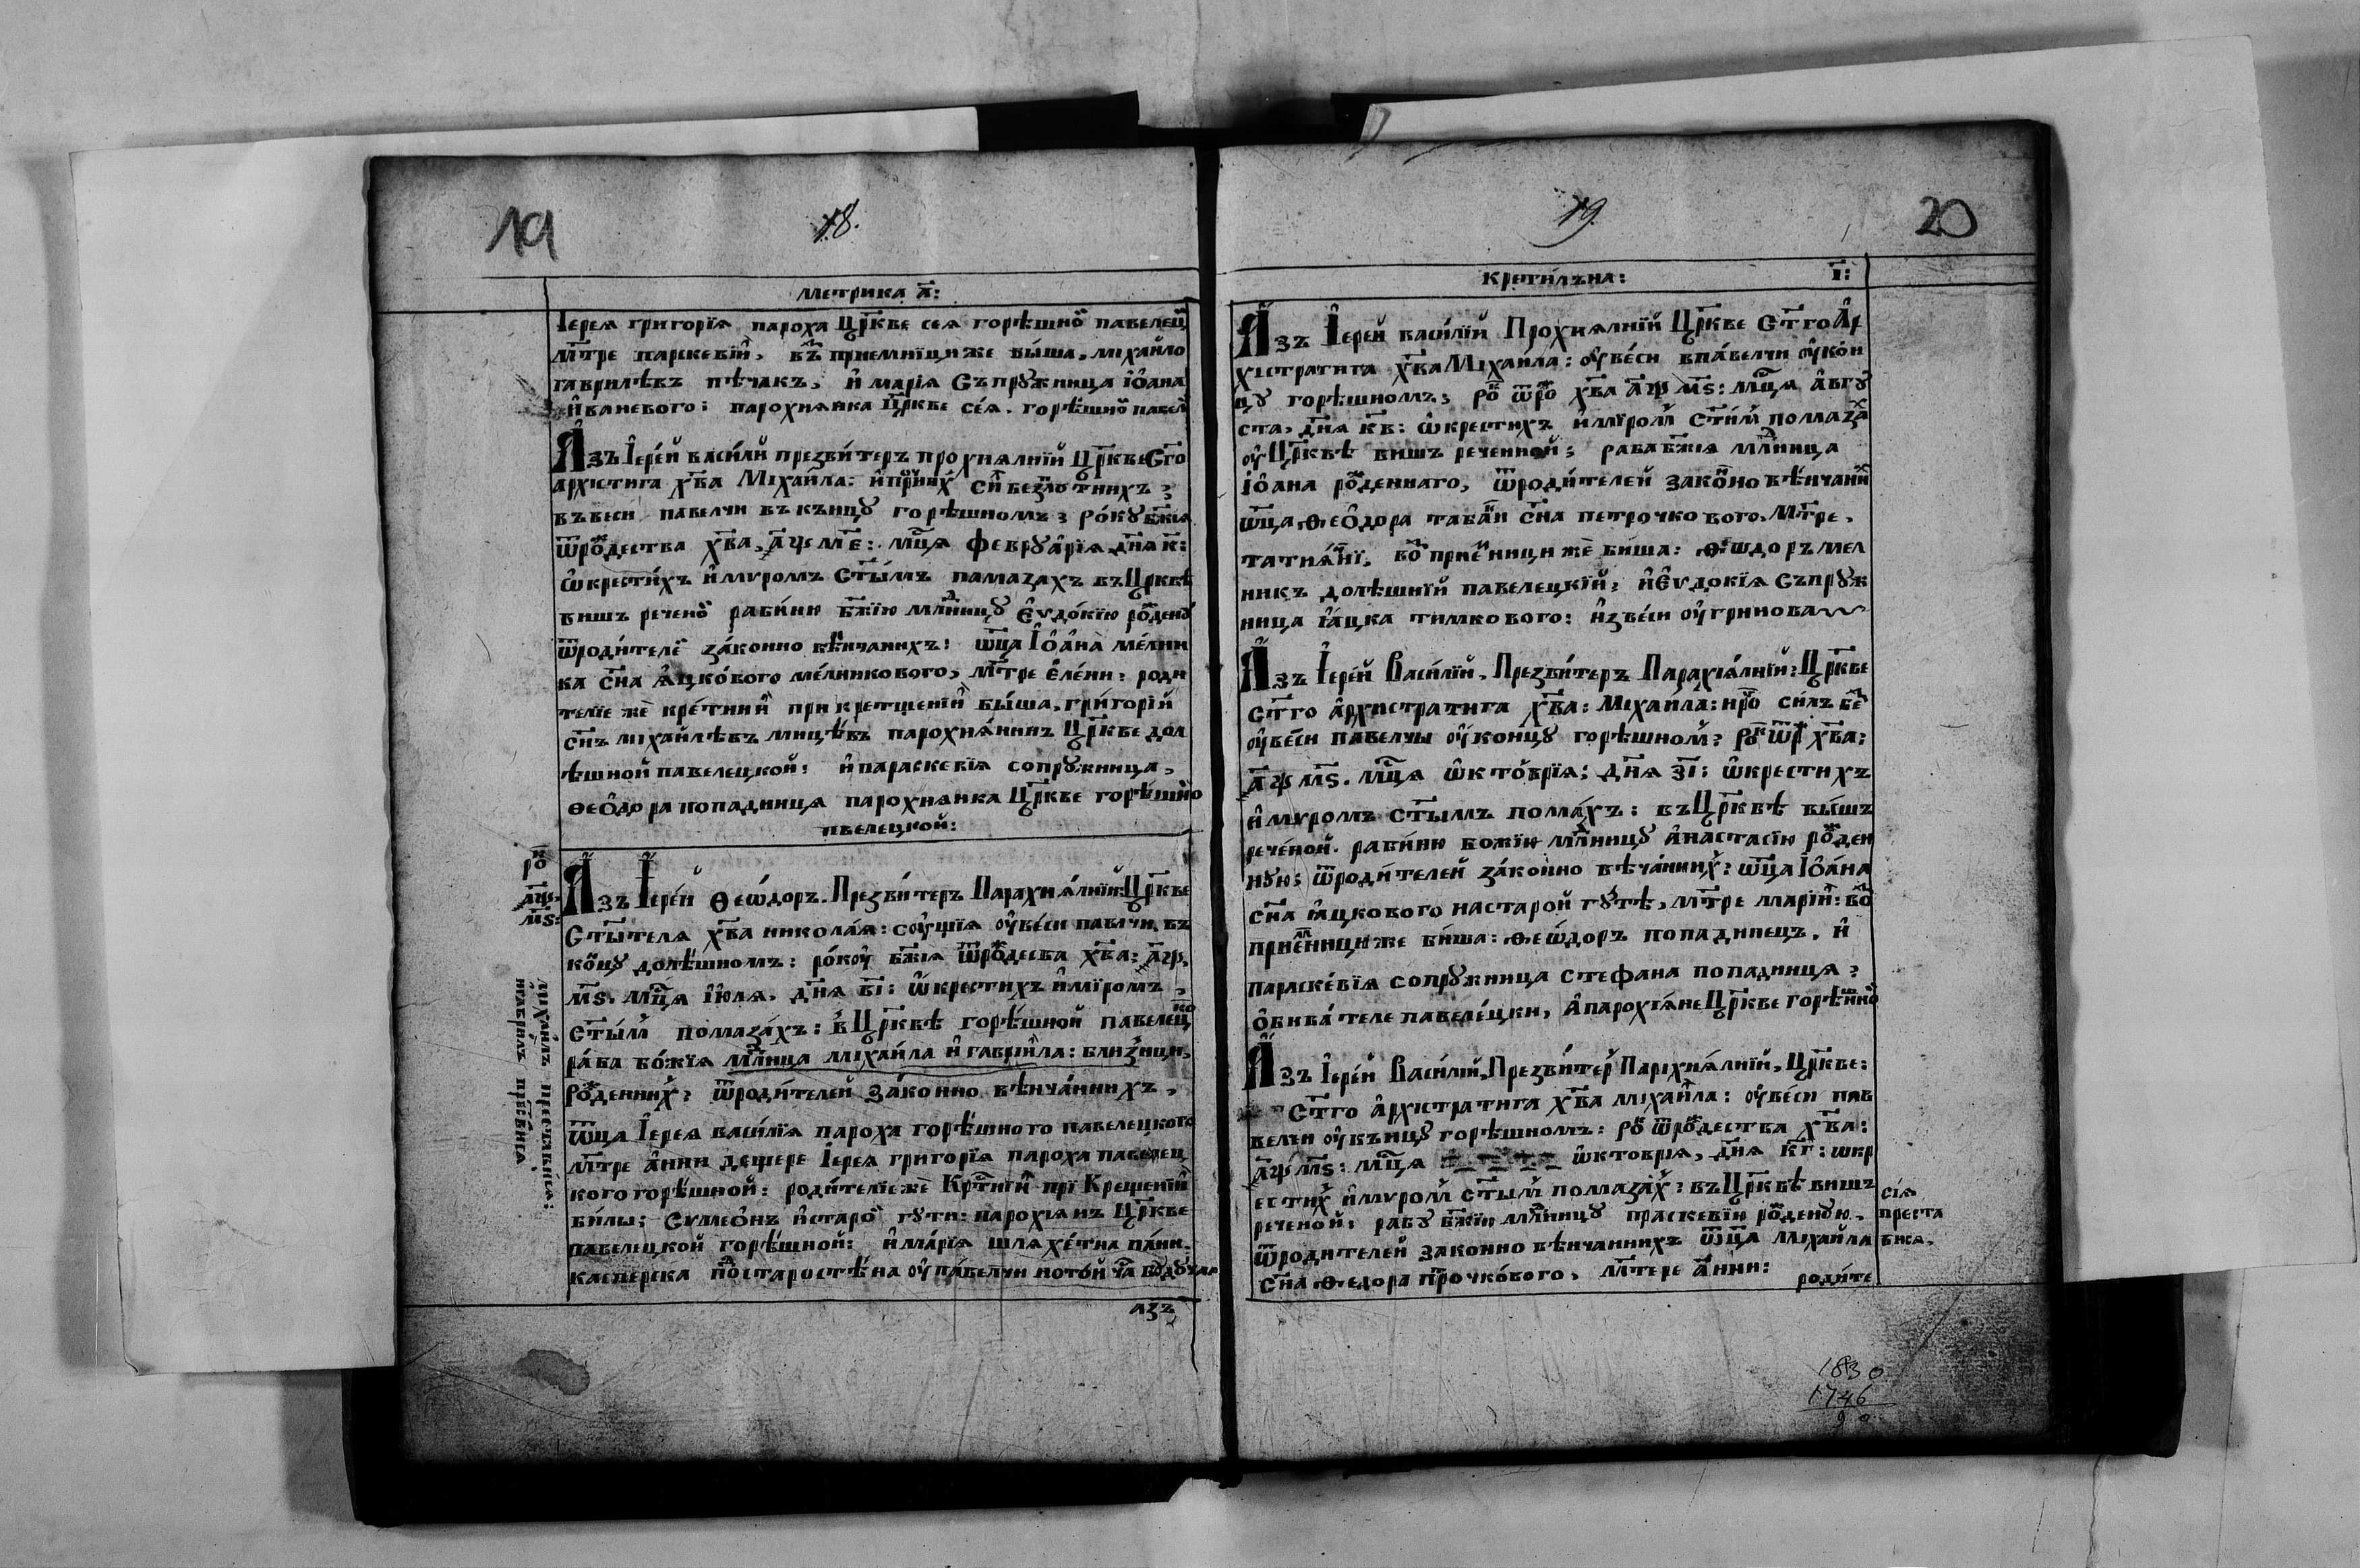 19
18.
Метрика а҃:
Іерея григорїя пароха Цр҃кве сея горѣшно павелец
Мт҃ре параскевїи, въ приемнїциже бы́ша, міхайло
гаврилѣвъ пѣчакъ, и марія Съпружница іоана
иваневого: парохиянка Цр҃кве сея. горѣшно павел
Азъ Іерей василй презвитеръ прохиялнїй Цр҃кве Ст҃го
архістига хв҃а Міхайла:
въвеси павелчи въ кънцу горѣшномъ; року бж҃ія
ѿродества хв҃а, а҃ѱме҃: мц҃я февруарїя дн҃я к҃:
ѡкрестихъ имуромъ Ст҃ымъ памазахъ въЦр҃квѣ
вишъ речено рабиню бж҃їю млдницу Еѵдокїю роденѹ
ѿродителе законно вѣнчанихъ: ѡц҃а Іоана мелни
ка сн҃а яцкового мелникового, мт҃ре елени: роди
телїе же кретнии при кретщенїи бы́ша, григорїй
сн҃ъ міхайлѣвъ мицѣвъ парохиянинъ Цр҃кве дол
ѣшной павелецкой: и параскевїя сопружница,
ѳеодора попадинця парохиянка Цр҃кве горѣшно
пвелецкой:
рок
а҃ѱ.
мѕ҃:
Азъ Іерей Ѳеѡдоръ. Презвитеръ Парахиялнїй: Цр҃кве
Ст҃ытеля хв҃а николая: соущїя оувеси павлчи, въ
концу долѣшномъ: рокоу бж҃ія ѿродесва хв҃а: а҃ѱ.
мѕ҃. мц҃я іюля. дн҃я в҃і: ѡкрестихъ имїромъ,
ст҃ым помазахъ: в Цр҃квѣ горѣшной павелецко
раба божїя млднца міхаила и гавриила: близници,
роденних: ѿродителей законно вѣнчаннихъ,
ѿца Іерея василїя пароха горѣшного павелецкого
мт҃ре анни дещере Іерея григорїя пароха павелец
кого горѣшной: родителїеже Крт҃нии прї Крещенїи
били; Сумеонъ истаро гути: парохіянъ Цр҃кве
павелецкой горѣшной: и марїя шляхетна панн.
касперска постаростѣна оупавелчи
азъ
міхаилъ преставися:
игаврилъ
19.
20
Кретилъна:
і҃:
Азъ Іерей василїй Прохиялнїй Цр҃кве Ст҃го Ар
хістратига хв҃а Міхаила: оувеси впавелчи оукон
цу горѣшномъ; ро ѿро хв҃а а҃ѱ мѕ҃: мц҃я авгу
ста, дн҃я кв҃: ѡкрестихъ имїром ст҃им помаза
оуЦр҃квѣ вишъ реченной; раба бж҃ія млдница
іоана роденнаго, ѿродителей законо вѣнчани
ѿца, ѳеодора таван сн҃а петрочкового, мт҃ре,
татияни, во приемници же биша: ѳеѡдоръ мел
никъ долѣшнїй павелецкїй: иЕѵдокїя Съпруж
ница яцка тимкового: извеси оугринова
Азъ Іерей Василїй, Презвитеръ Парахіялнїй: Цр҃кве
Ст҃го архистратига хв҃а: Міхаила: ипро силъ бе
оувеси павелчы оуконцу горѣшном: ро ѿр хв҃а:
а҃ѱ мѕ҃. мц҃я ѡктоврїя; дн҃я з҃і: ѡкрестихъ
имуромъ стымъ помахъ: въЦр҃квѣ вышъ
реченой. рабиню божїю млдницу анастасїю роден
ную: ѿродителей законно вѣчанних: ѿца Іоана
сн҃а яцкового настарой гутѣ, мт҃ре марїи: во
приемнициже биша: Ѳеѡдоръ попадинецъ, и
параскевїя сопружница стефана попадинця:
обивателе павелецки, апарохіяне Цр҃кве горѣшно
Азъ Іерей Василїй, Презвитер Паріхиялнїй, Цр҃кве:
Ст҃го архістратига хв҃а міхаила: оувеси пав
велчи оукънцу горѣшномъ: ро ѿродества хв҃а:
а҃ѱ мѕ҃: мц҃я ѡктоврія, дн҃я кг҃: ѡкр
естих имуром стым помазах: въЦр҃квѣ вишъ
реченой: рабу бж҃їю млдницу праскевїю роденую,
ѿродителей законно вѣнчаннихъ ѿца міхайла
сн҃а ѳедора прочкового, мт҃ере анни:
родите
сія
преста
вися.
1830
1746
90